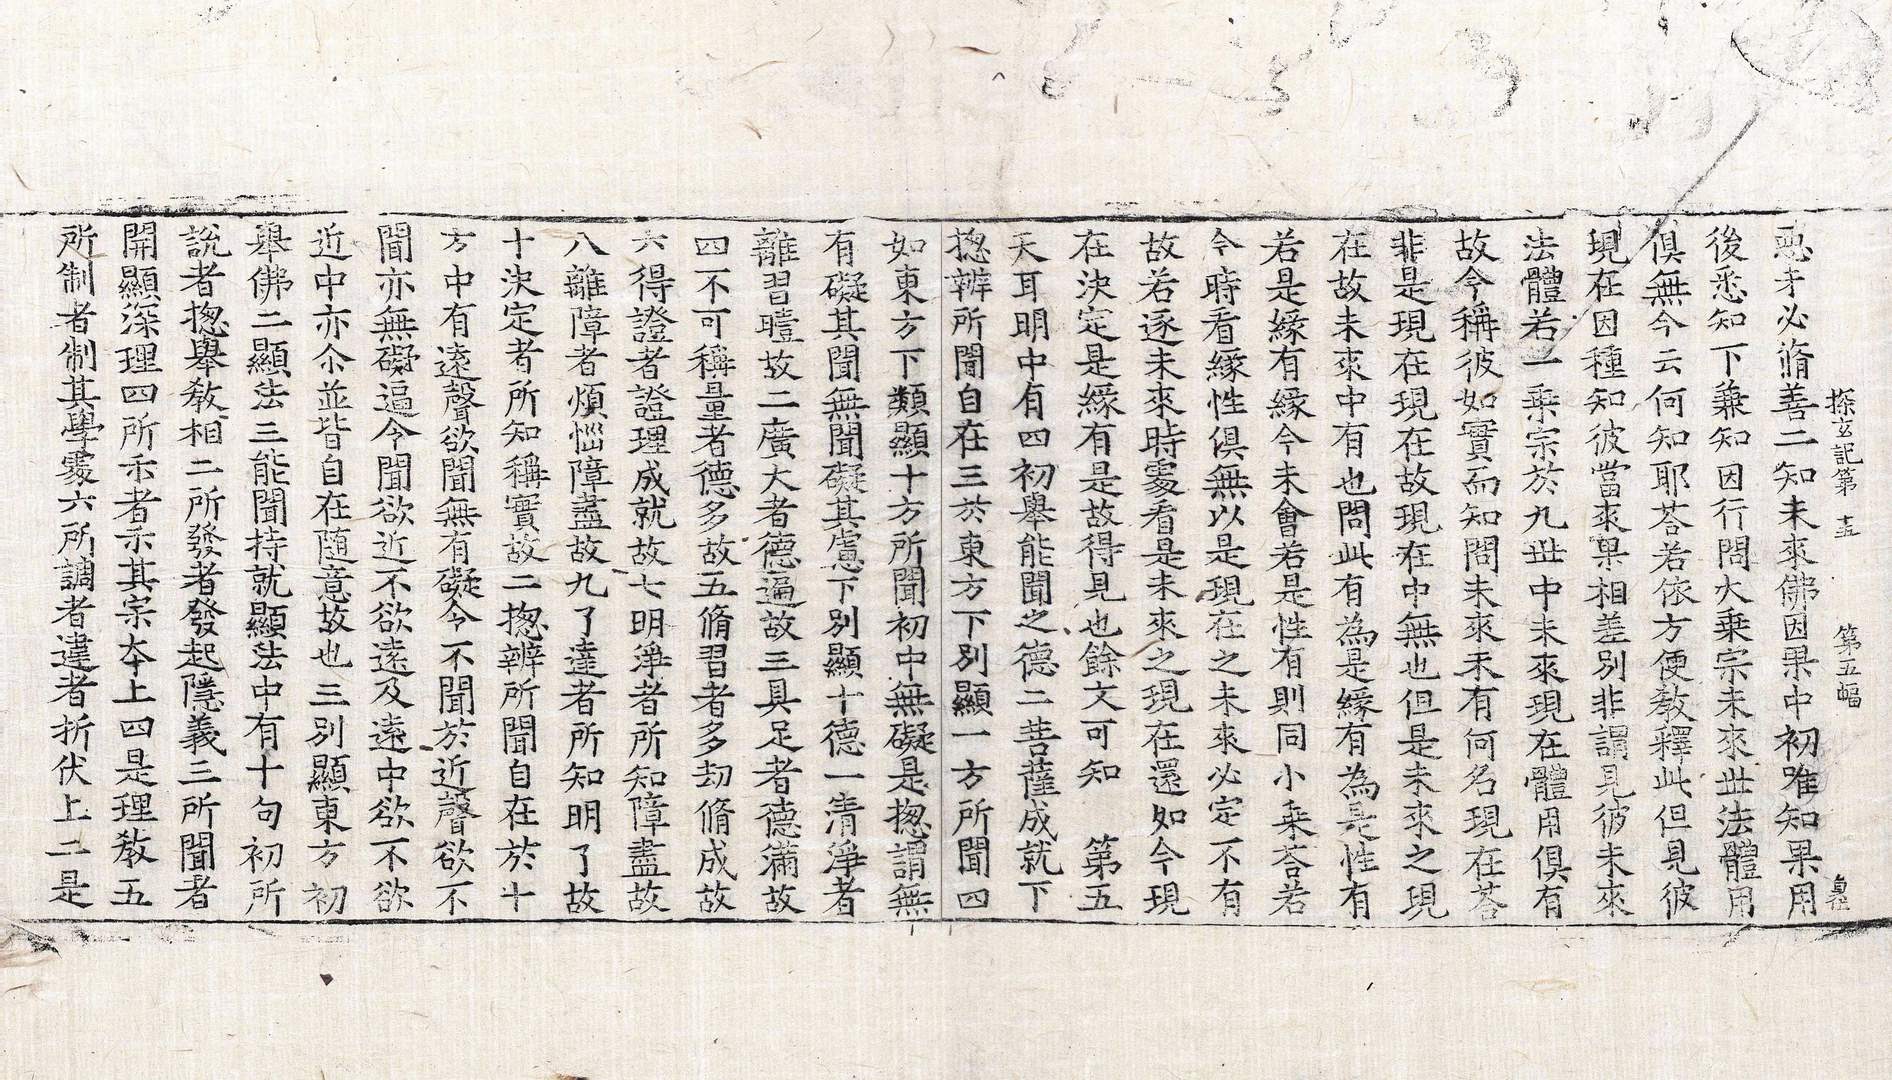 惡才必脩善二知未來佛因果中初唯知果用
後悉知下兼知因行問大乗宗未來世法體用
俱無今云何知耶荅若依方便敎釋此但見彼
現在因種知彼當來果相差別非謂見彼未來
法體若一乗宗於九世中未來現在體用俱有
故今稱彼如實而知問未來未有何名現在荅
非是現在現在故現在中無也但是未來之現
在故未來中有也問此有為是緣有為是性有
若是緣有緣今未會若是性有則同小乗荅若
今時看緣性俱無以是現在之未來必定不有
故若逐未來時䖏看是未來之現在還如今現
在決定是緣有是故得見也餘文可知　第五
天耳明中有四初舉能聞之德二菩薩成就下
揔辨所聞自在三於東方下別顯一方所聞四
如東方下類顯十方所聞初中無礙是揔謂無
有礙其聞無聞礙其慮下別顯十德一清淨者
離習曀故二廣大者德遍故三具足者德滿故
四不可稱量者德多故五脩習者多劫脩成故
六得證者證理成就故七明淨者所知障盡故
八離障者煩惱障盡故九了達者所知明了故
十決定者所知稱實故二揔辨所聞自在於十
方中有遠聲欲聞無有礙令不聞於近聲欲不
聞亦無礙逼令聞欲近不欲遠及遠中欲不欲
近中亦尒並皆自在隨意故也三別顯東方初
舉佛二顯法三能聞持就顯法中有十句初所
說者揔舉敎相二所發者發起隱義三所聞者
開顯深理四所示者示其宗本上四是理敎五
所制者制其學䖏六所調者違者折伏上二是
探玄記第　十五　第五幅